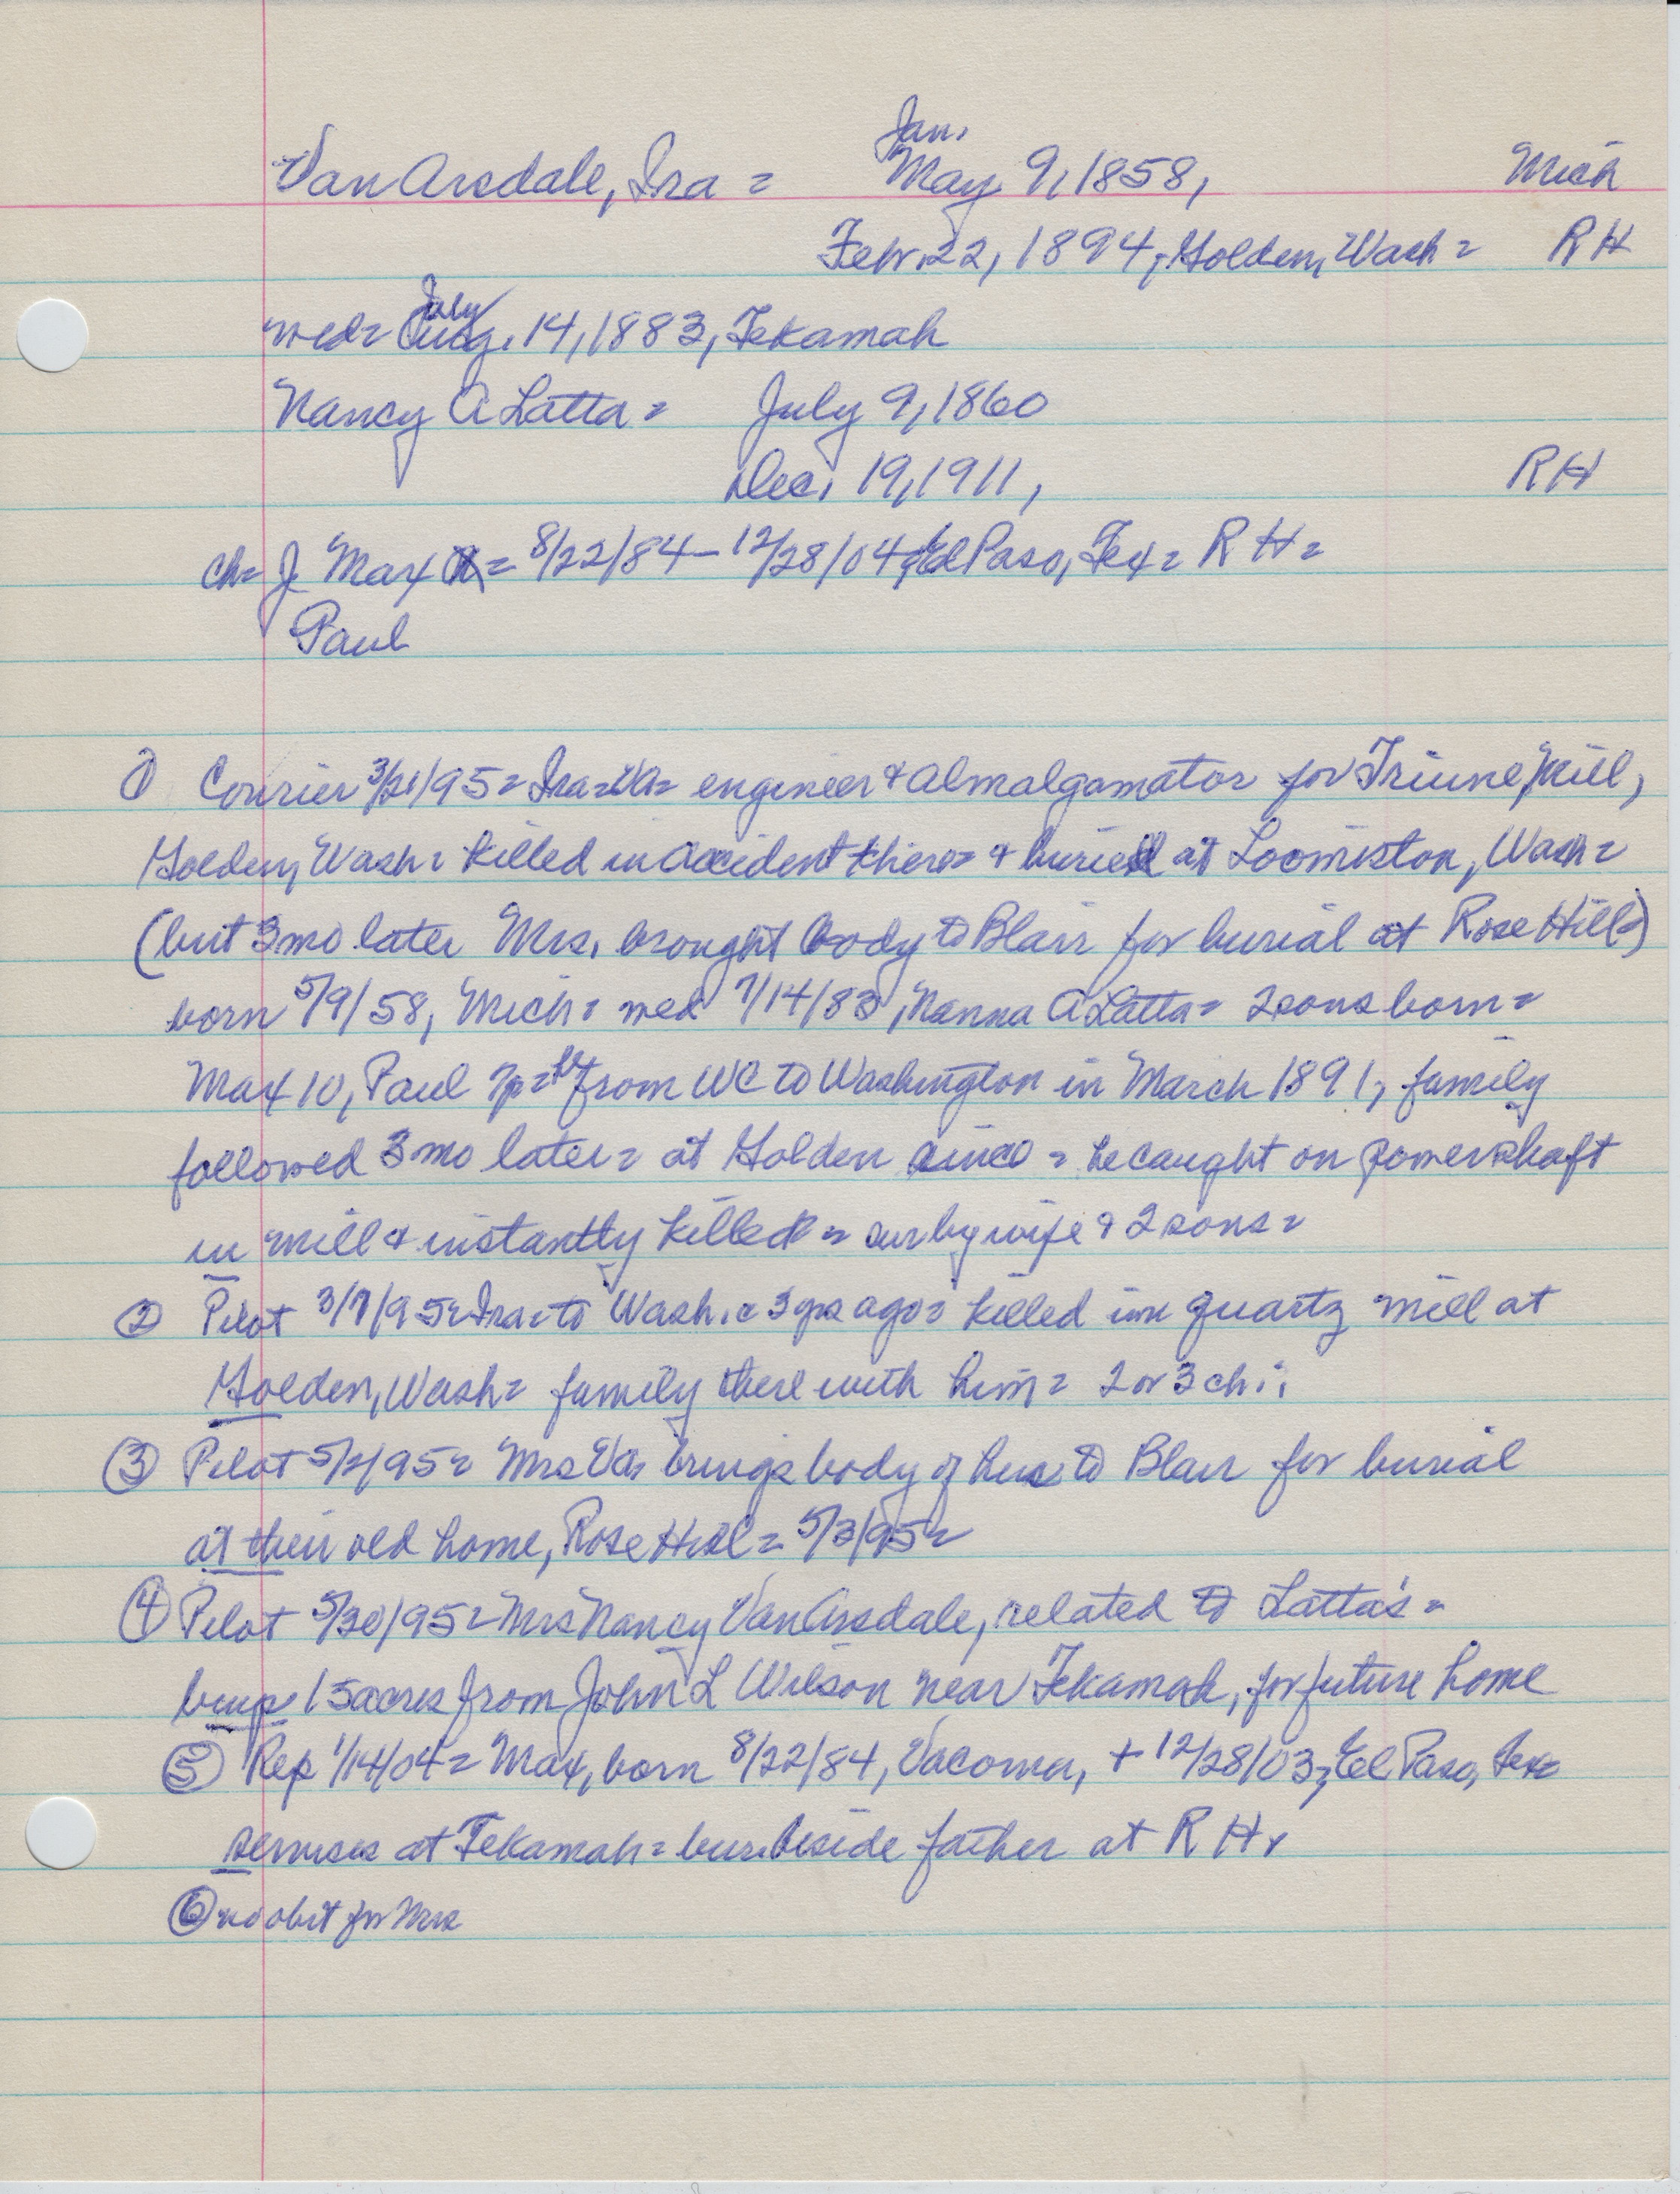 Jan.
Van Arsdale, Ira = May 9, 1858, Mich
Febr. 22, 1894, Golden, Wash = RH
July
wed = Aug. 14, 1883, Tekamah
Nancy A Latta = July 9, 1860
Dec. 19, 1911, RH
ch = J. Max = 8/22/84 – 12/28/04, El Paso, Tex = RH =
Paul
① Courier 3/21/95 = Ira = VA = engineer & almalgamator for Triune Mill,
Golden, Wash = killed in accident there = & buried at Loomiston, Wash =
(but 3 mo later Mrs. brought body to Blair for burial at Rose Hill)
born 5/9/58, Mich = wed 7/14/83, Nanna A Latta = 2 sons born =
Max 10, Paul 7 = from WC to Washington in March 1891, family
followed 3 mo later = at Golden since = he caught on powershaft
in mill & instantly killed = sur by wife & 2 sons =
② Pilot 3/7/95 = Ira = to Wash. c 3 yrs ago = killed in quartz mill at
Golden, Wash = family there with him = 2 or 3 ch..
③ Pilot 5/2/95 = Mrs VA brings body of hus to Blair for burial
at their old home, Rose Hill = 5/3/95 =
④ Pilot 5/30/95 = Mrs Nancy Van Arsdale, related to Latta's =
buys 15 acres from John L Wilson near Tekamah, for future home
⑤ Rep 1/14/04 = Max, born 8/22/84, Vacoma, + 12/28/03, El Paso, Tex =
services at Tekamah = bur. beside father at RH,
⑥ no obit for Mrs